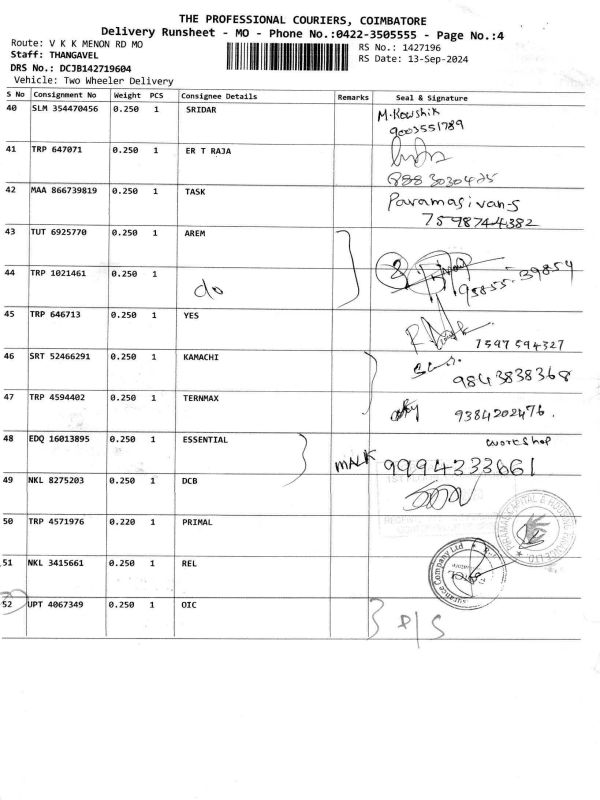 THE PROFESSIONAL COURIERS, COIMBATORE
Delivery Runsheet - MO - Phone No.:0422-3505555 - Page No.:4
Route: V K K MENON RD MO
RS No.: 1427196
Staff: THANGAVEL
RS Date: 13-Sep-2024
DRS No.: DCJB142719604
Vehicle: Two Wheeler Delivery
S No Consignment No Weight PCS Consignee Details Remarks Seal & Signature
40 SLM 354470456 0.250 1 SRIDAR M.Kowshik
9003551789
41 TRP 647071 0.250 1 ER T RAJA
42 MAA 866739819 0.250 1 TASK Paramasivan-S
7598744382
43 TUT 6925770 0.250 1 AREM
44 TRP 1021461 0.250 1 do 95855-39854
45 TRP 646713 0.250 1 YES
7597594327
46 SRT 52466291 0.250 1 KAMACHI
9843838368
47 TRP 4594402 0.250 1 TERNMAX 9384202476.
48 EDQ 16013895 0.250 1 ESSENTIAL workshop
MALK 9999433661
49 NKL 8275203 0.250 1 DCB
50 TRP 4571976 0.220 1 PRIMAL
51 NKL 3415661 0.250 1 REL
52 UPT 4067349 0.250 1 OIC